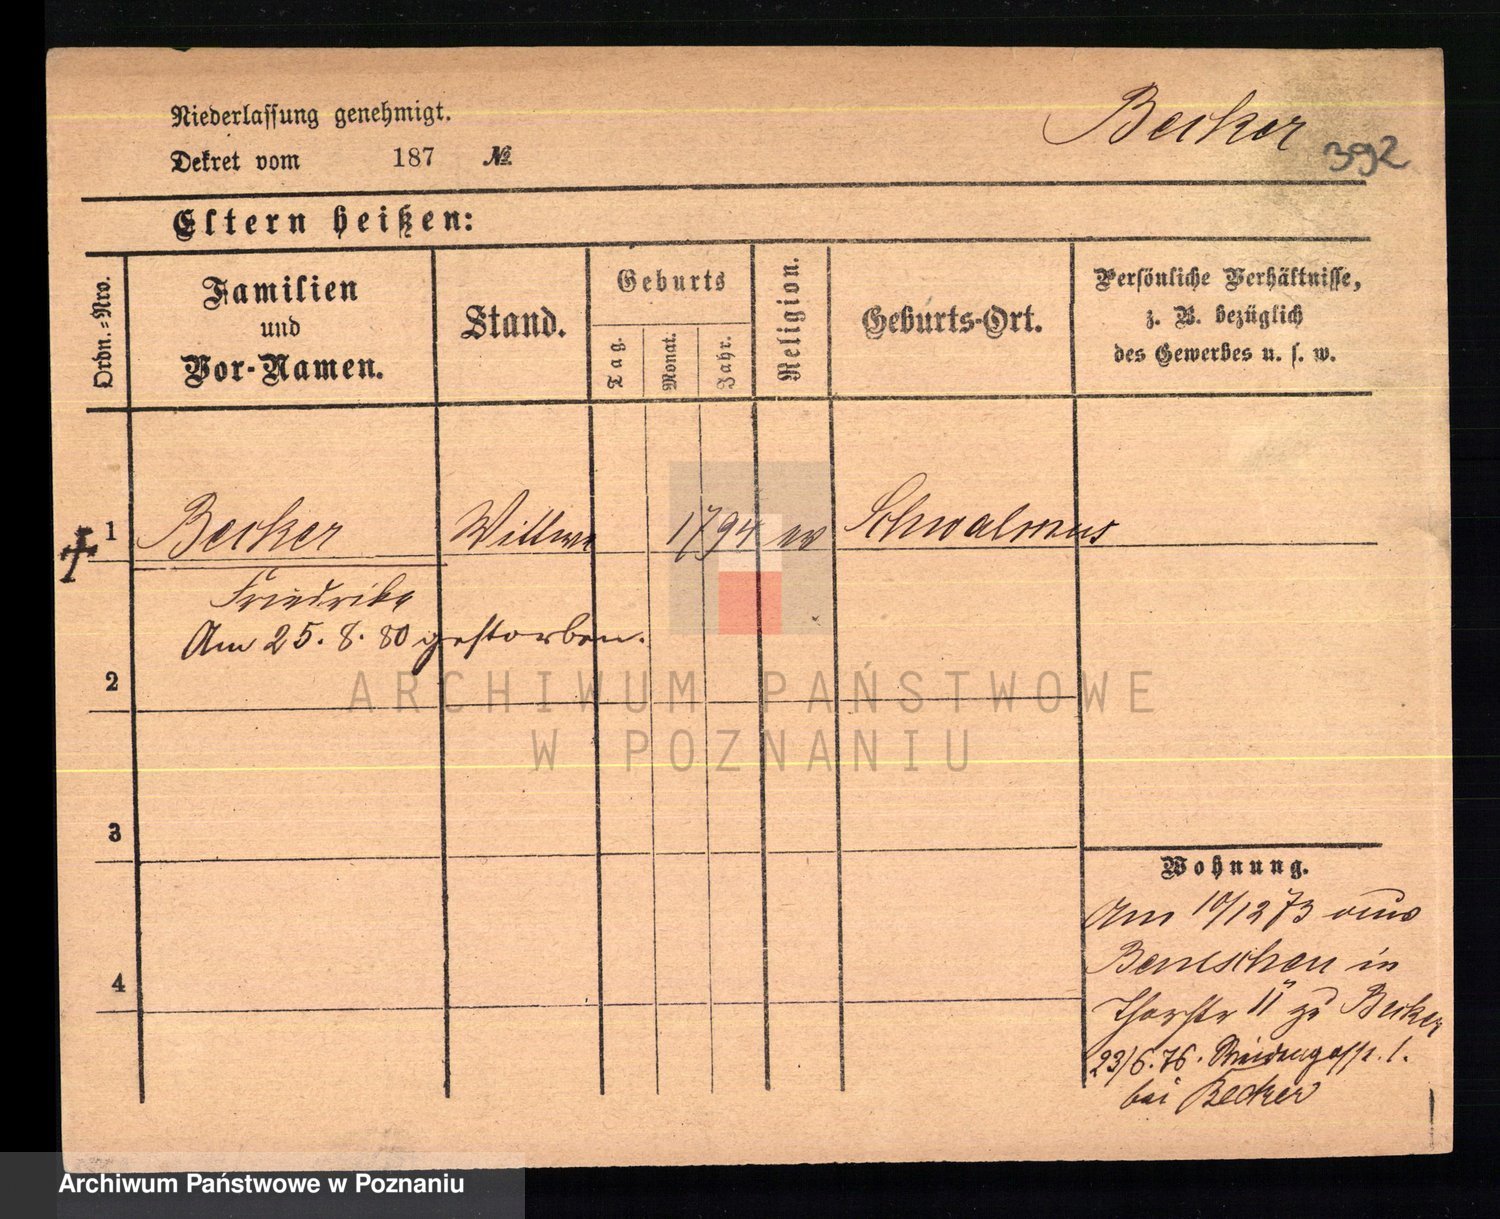 Niederlassung genehmigt.
Dekret vom 187 №
Becker
392
Eltern heißen:
Ordn.-Nro.
Familien
und
Vor-Namen.
Stand.
Geburts
Tag.
Monat.
Jahr.
Religion.
Geburts-Ort.
Persönliche Verhältnisse,
z. B. bezüglich
des Gewerbes u. s. w.
1 Becker Wittwe 1794 ev
Friedrike
Am 25. 8. 80 gestorben.
2
3
4
Wohnung.
Am 10/12 73 aus
Bentschen in
Thorstr 11 zu Becker
23/6. 76. 1.
bei Becker
ARCHIWUM PAŃSTWOWE
W POZNANIU
Archiwum Państwowe w Poznaniu